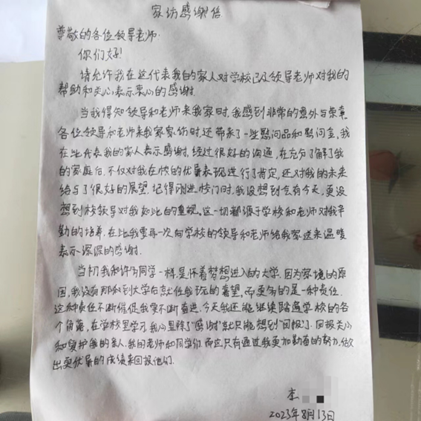 家访感谢信
尊敬的各位领导老师:
你们好!
请允许我在这代表我的家人对学校已及领导老师对我的
帮助和关心表示衷心的感谢
当我得知领导和老师来我家时,我感到非常的意外与荣幸
各位领导和老师来我家家访时还带来了一些慰问品和慰问金,我
在此代表我的家人表示感谢,经过很好的沟通,在充分了解了我
的家庭后,不仅对我在校的优异表现进行了肯定,还对我的未来
给与了很好的展望,记得刚进校门时,我没想到会有今天,更没
想到学校领导对我如此的重视,这一切都源于学校和老师对我辛
勤的培养,在此我要再一次向学校的领导和老师给我家送来温暖
表示深深的感谢。
当初我和许多同学一样是怀着梦想进入的大学,因为家境的原
因,我没有那种到大学后就任我玩的奢望,而更多的是一种责任
这种责任不断催促我要不断奋进,今天我还能继续踏遍学校的各
个角落,在学校里学习,我心里除了"感谢"就只能想到"回报"了,回报关心
和爱护我的家人,我的老师和同学们,而这只有通过我更加勤奋的努力,做
出更优异的成绩来回报他们。
李
2023年8月13日